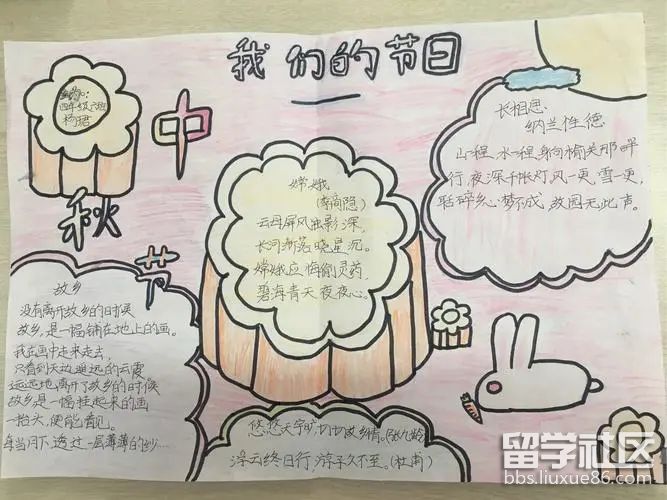 我们的节日
四年级六班
杨珺
中
秋
节
嫦娥
(李商隐)
云母屏风烛影深,
长河渐落晓星沉。
嫦娥应悔偷灵药,
碧海青天夜夜心。
长相思
纳兰性德
山一程,水一程,身向榆关那畔
行,夜深千帐灯,风一更,雪一更,
聒碎乡心梦不成,故园无此声。
故乡
没有离开故乡的时候
故乡,是一幅铺在地上的画。
我在画中走来走去,
只看到天边遥远的云霞
远远地离开了故乡的时候
故乡是一幅挂起来的画
一抬头,便能看见。
每当月下,透过一层薄薄的纱…
悠悠天宇旷,切切故乡情。(张九龄)
浮云终日行,游子久不至。(杜甫)
留学社区
bbs.liuxue86.com